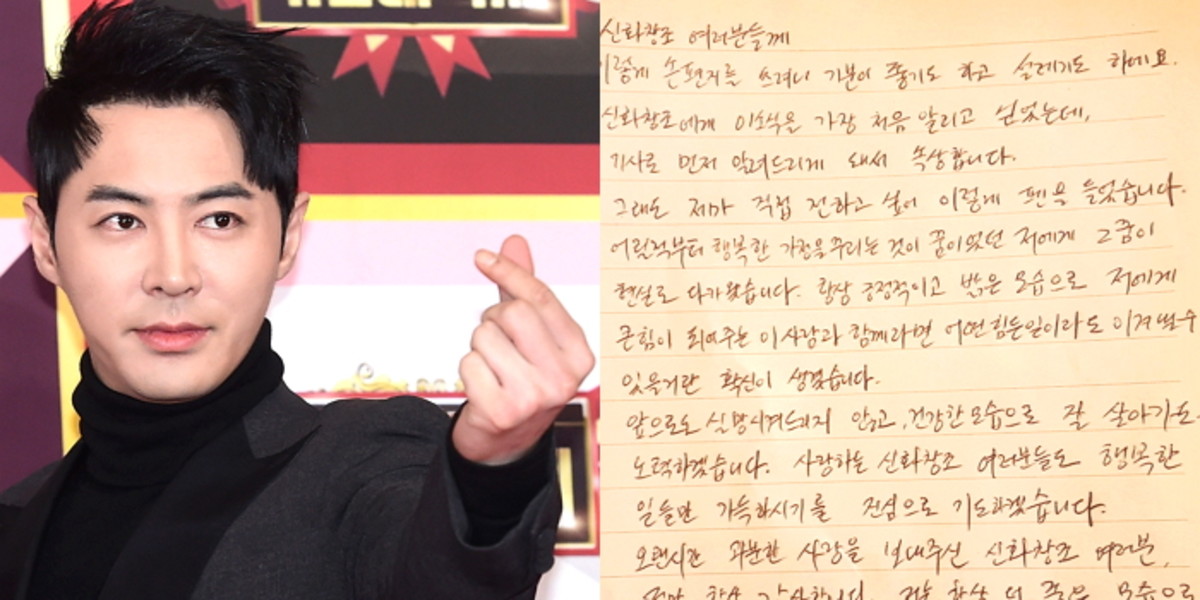 신화창조 여러분들께
이렇게 손편지를 쓰려니 기분이 좋기도 하고 설레기도 하네요.
신화창조에게 이소식을 가장 처음 알리고 싶었는데,
기사로 먼저 알려드리게 돼서 속상합니다.
그래도 제가 직접 전하고 싶어 이렇게 펜을 들었습니다.
어릴적부터 행복한 가정을 꾸리는 것이 꿈이었던 저에게 그 꿈이
현실로 다가왔습니다. 항상 긍정적이고 밝은 모습으로 저에게
큰힘이 되어주는 이 사람과 함께라면 어떤 힘든일이라도 이겨낼수
있을거란 확신이 생겼습니다.
앞으로도 실망시켜드리지 않고, 건강한 모습으로 잘 살아가도
노력하겠습니다. 사랑하는 신화창조 여러분들도 행복한
일들만 가득하시기를 진심으로 기도하겠습니다.
오랜시간 과분한 사랑을 보내주신 신화창조 여러분,
감사합니다. 항상 더 좋은 모습으로